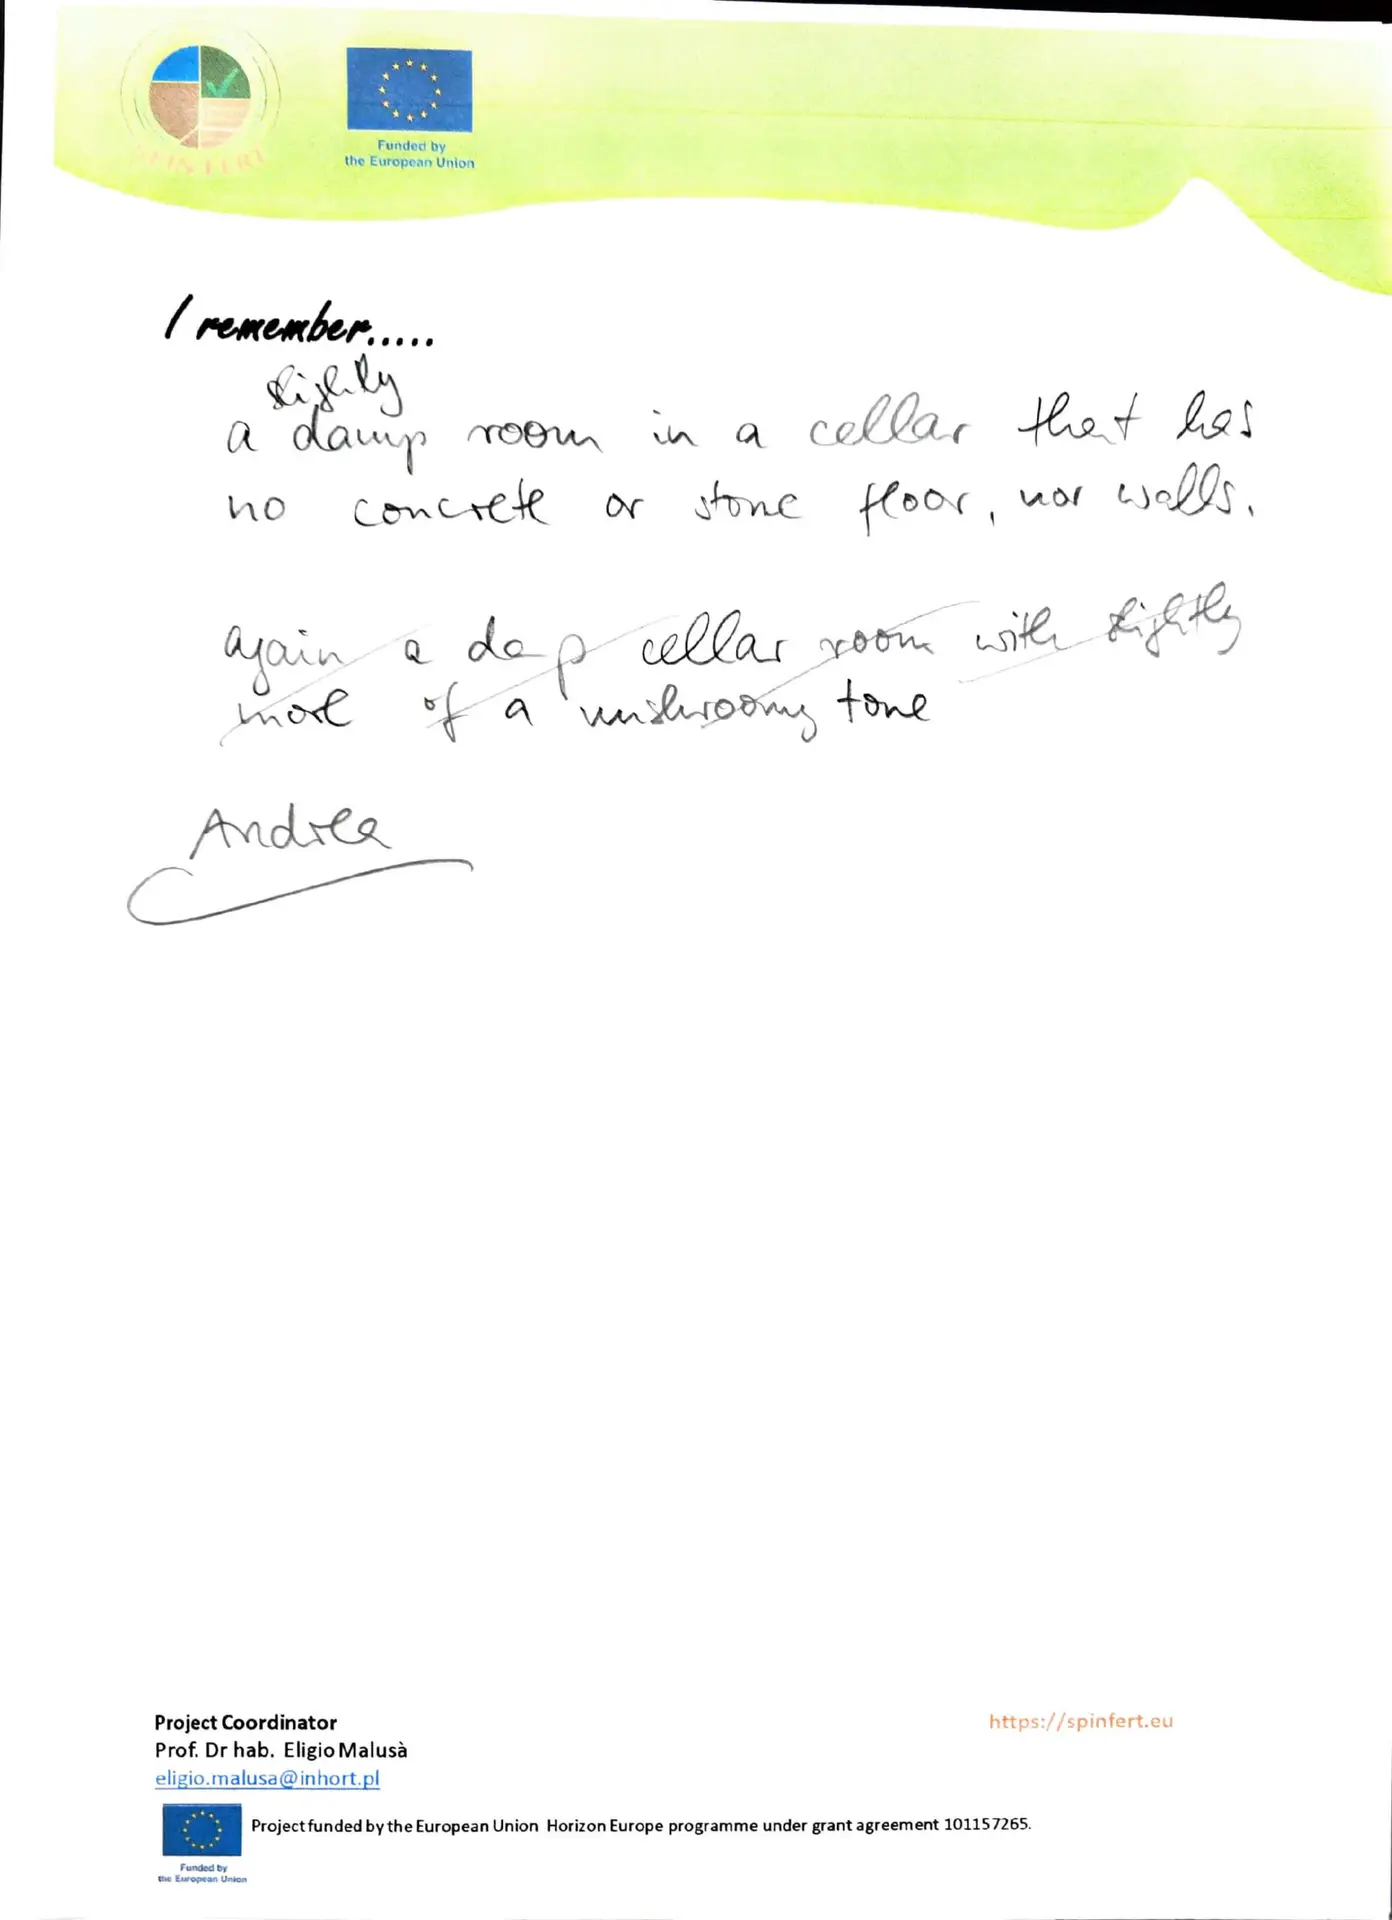 SPIN FERT
Funded by
the European Union
I remember.....
slightly
a damp room in a cellar that has
no concrete or stone floor, nor walls.
again a dap cellar room with slightly
more of a mushroomy tone
Andrea
Project Coordinator
https://spinfert.eu
Prof. Dr hab. Eligio Malusà
eligio.malusa@inhort.pl
Project funded by the European Union Horizon Europe programme under grant agreement 101157265.
Funded by
the European Union